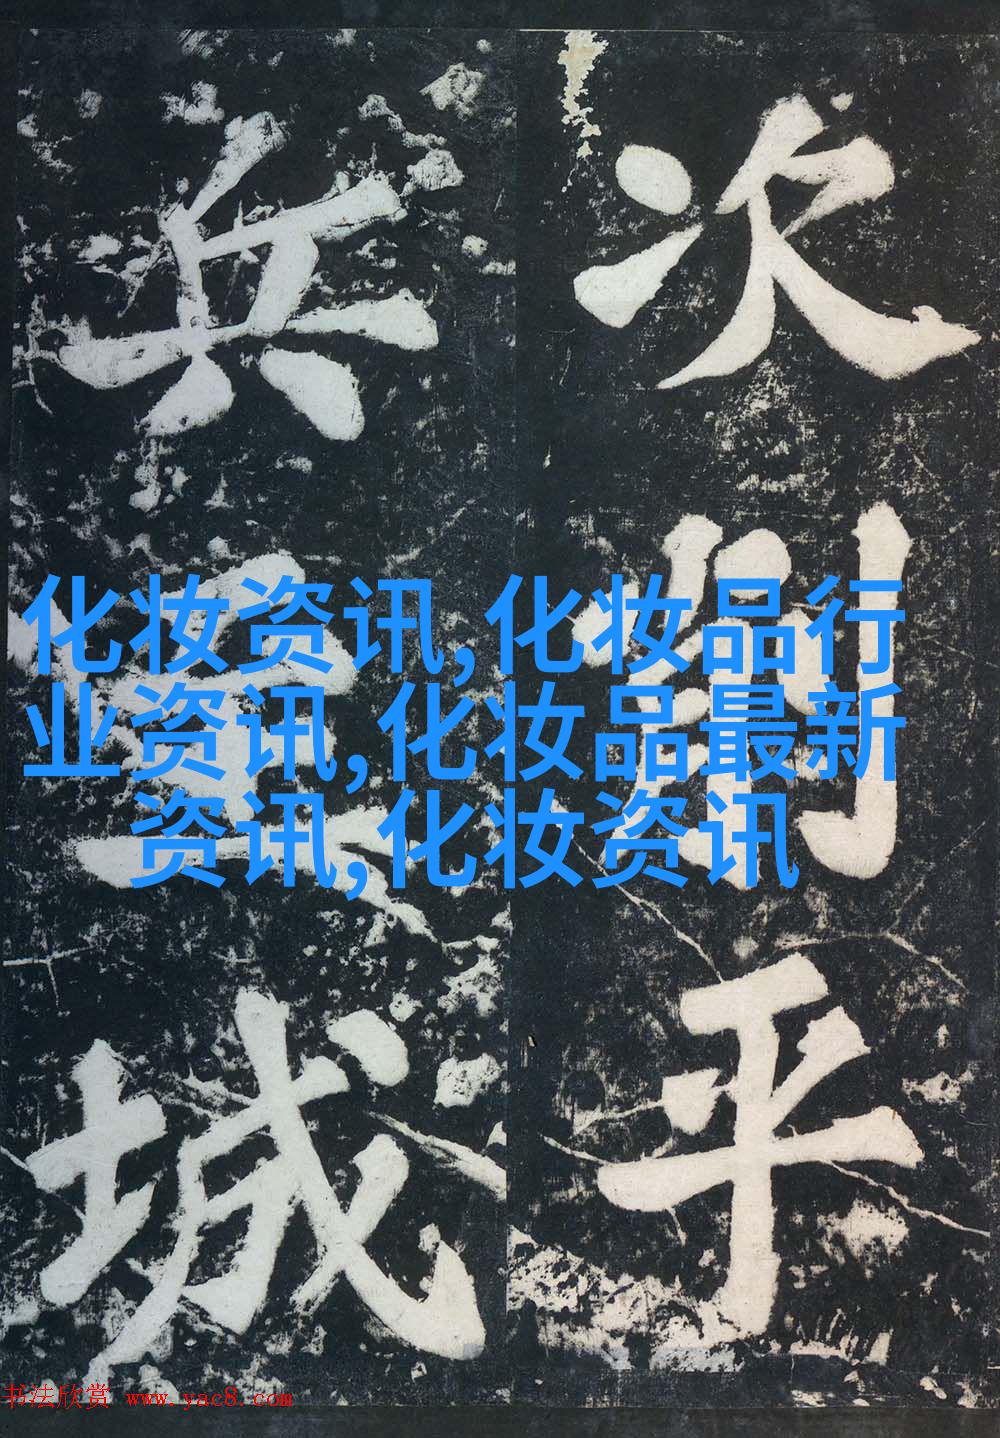 次
平
兵
城
化妆资讯,化妆品行
业资讯,化妆品最新
资讯,化妆资讯
书法欣赏 www.yac8.com